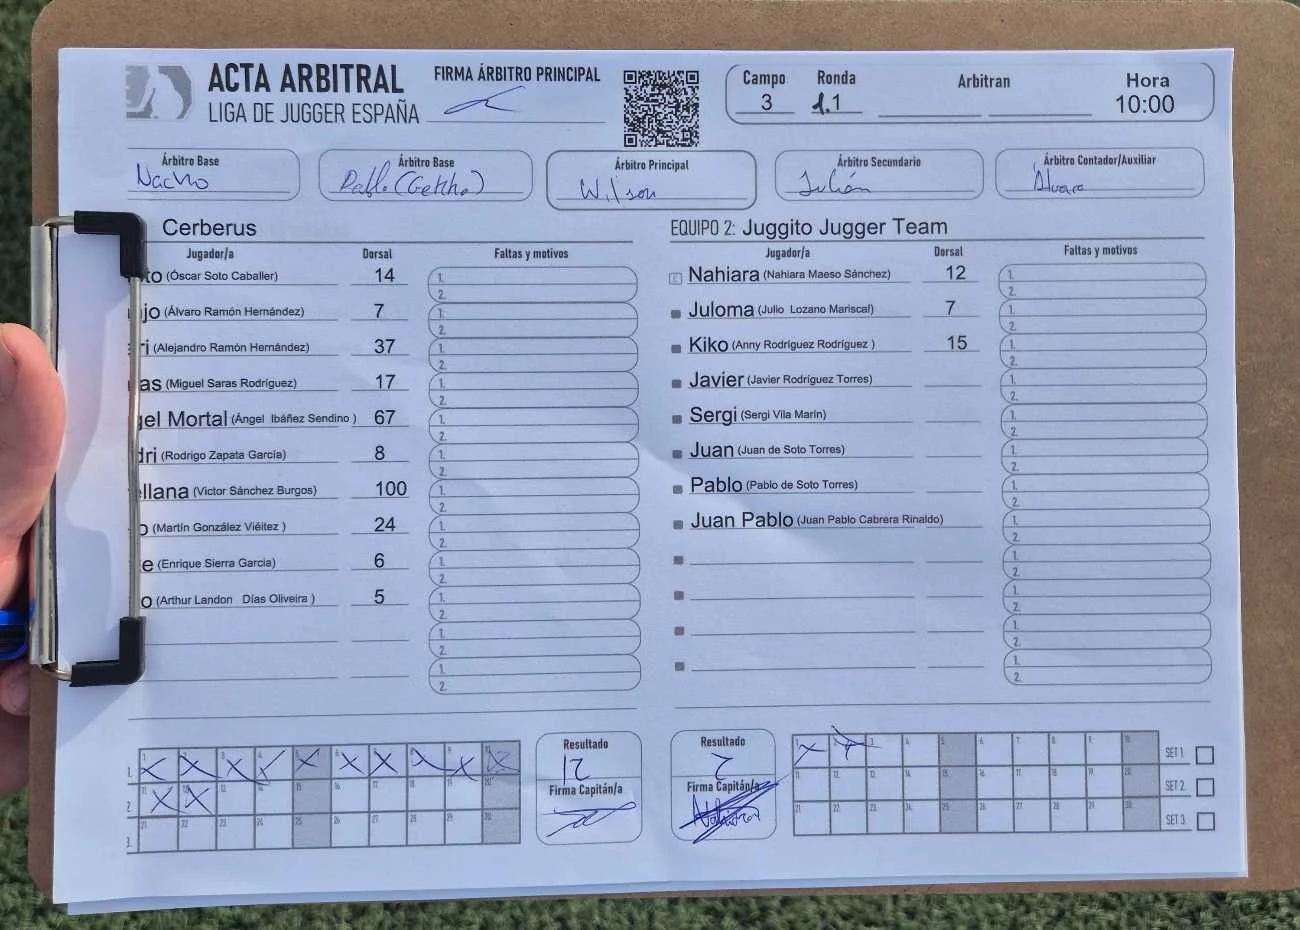 ACTA ARBITRAL
LIGA DE JUGGER ESPAÑA
FIRMA ÁRBITRO PRINCIPAL
Campo Ronda Arbitran Hora
3 1.1 10:00
Árbitro Base Árbitro Base Árbitro Principal Árbitro Secundario Árbitro Contador/Auxiliar
Nacho Pablo Wilson Julián Alvaro
Cerberus
Jugador/a Dorsal Faltas y motivos
(Óscar Soto Caballer) 14 1. 2.
(Álvaro Ramón Hernández) 7 1. 2.
(Alejandro Ramón Hernández) 37 1. 2.
(Miguel Saras Rodríguez) 17 1. 2.
gel Mortal (Ángel Ibáñez Sendino ) 67 1. 2.
dri (Rodrigo Zapata García) 8 1. 2.
ellana (Victor Sánchez Burgos) 100 1. 2.
(Martín González Viéitez ) 24 1. 2.
(Enrique Sierra Garcia) 6 1. 2.
(Arthur Landon Días Oliveira ) 5 1. 2.
1. 2.
1. 2.
EQUIPO 2: Juggito Jugger Team
Jugador/a Dorsal Faltas y motivos
Nahiara (Nahiara Maeso Sánchez) 12 1. 2.
Juloma (Julio Lozano Mariscal) 7 1. 2.
Kiko (Anny Rodríguez Rodríguez ) 15 1. 2.
Javier (Javier Rodríguez Torres) 1. 2.
Sergi (Sergi Vila Marín) 1. 2.
Juan (Juan de Soto Torres) 1. 2.
Pablo (Pablo de Soto Torres) 1. 2.
Juan Pablo (Juan Pablo Cabrera Rinaldo) 1. 2.
1. 2.
1. 2.
1. 2.
1. 2.
1. 1. 2. 3. 4. 5. 6. 7. 8. 9. 10.
2. 11. 12. 13. 14. 15. 16. 17. 18. 19. 20.
3. 21. 22. 23. 24. 25. 26. 27. 28. 29. 30.
Resultado
12
Firma Capitán/a
Resultado
2
Firma Capitán/a
1. 2. 3. 4. 5. 6. 7. 8. 9. 10. SET 1.
11. 12. 13. 14. 15. 16. 17. 18. 19. 20. SET 2.
21. 22. 23. 24. 25. 26. 27. 28. 29. 30. SET 3.